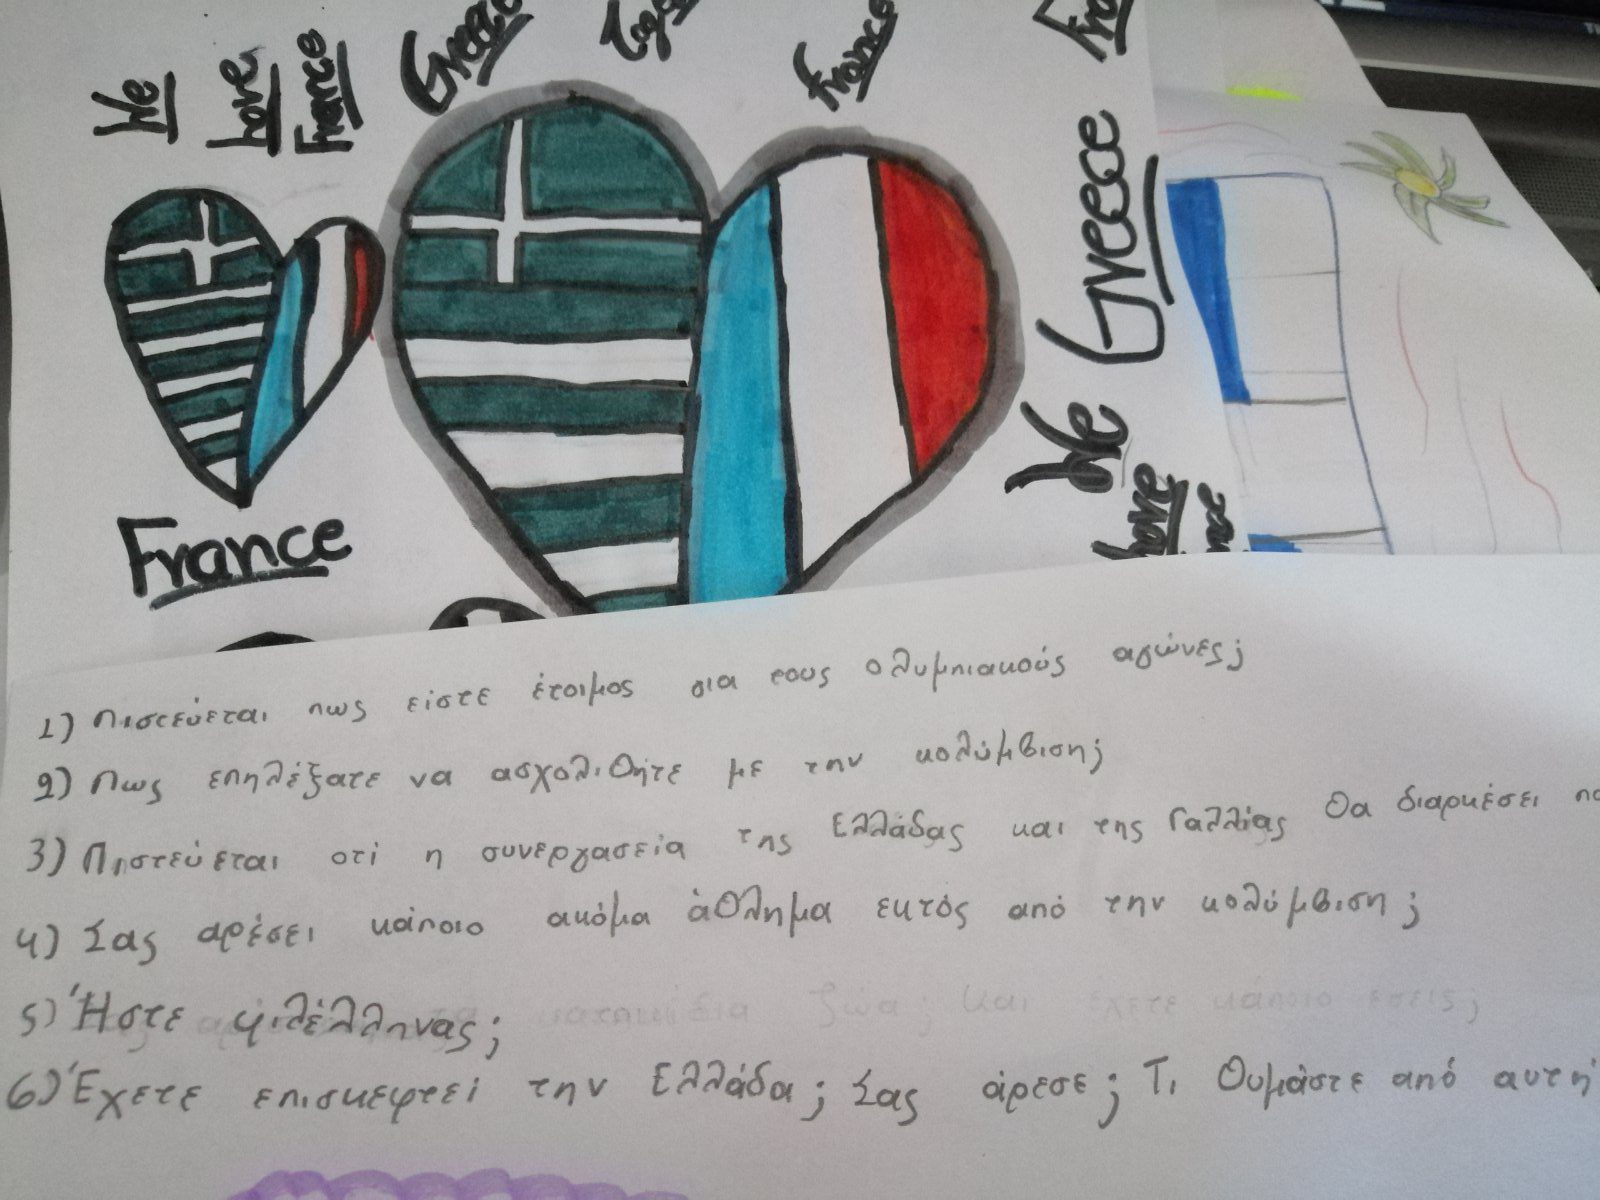 We
Love
France
Greece
France
We Greece
We
Love
France
1) Πιστεύεται πως είστε έτοιμος για τους ολυμπιακούς αγώνες;
2) Πως επηλέξατε να ασχολιθήτε με την κολύμβιση;
3) Πηστεύεται οτί η συνεργασεία της Ελλάδας και της Γαλλίας θα διαρκέσει
4) Σας αρέσει κάποιο ακόμα άθλημα εκτός από την κολύμβιση;
5) Ήστε φιλέλληνας;
6) Έχετε επισκεφτεί την Ελλάδα; Σας άρεσε; Τι θυμάστε από αυτή